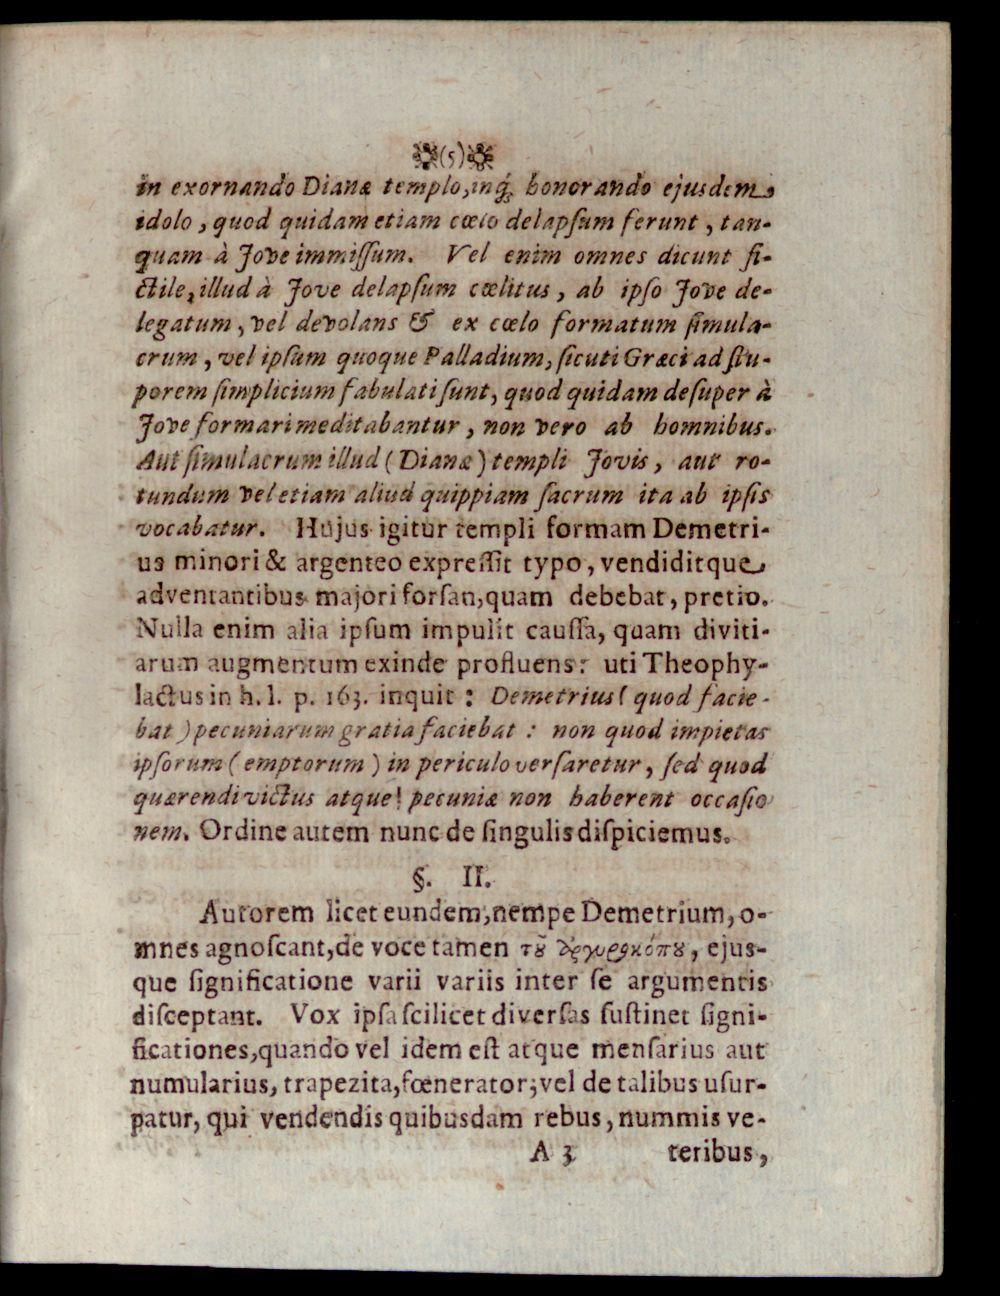 (5)
in exornando Dianæ templo, inq́; honorando ejusdem
idolo, quod quidam etiam cœlo delapſum ferunt, tan-
quam à Jove immiſſum. Vel enim omnes dicunt fi-
ctile, illud à Jove delapſum cœlitus, ab ipſo Jove de-
legatum, vel devolans & ex cœlo formatum ſimula-
crum, vel ipſum quoque Palladium, ſicuti Græci ad ſtu-
porem ſimplicium fabulati ſunt, quod quidam deſuper à
Jove formari meditabantur, non vero ab homnibus.
Aut ſimulacrum illud (Dianæ) templi Jovis, aut ro-
tundum vel etiam aliud quippiam ſacrum ita ab ipſis
vocabatur. Hujus igitur templi formam Demetri-
us minori & argenteo expreſſit typo, vendiditque
adventantibus majori forſan, quam debebat, pretio.
Nulla enim alia ipſum impulit cauſſa, quam diviti-
arum augmentum exinde profluens: uti Theophy-
lactus in h. l. p. 163. inquit: Demetrius (quod facie-
bat) pecuniarum gratia faciebat: non quod impietas
ipſorum (emptorum) in periculo verſaretur, ſed quod
quærendi victus atque! pecuniæ non haberent occaſio
nem. Ordine autem nunc de ſingulis diſpiciemus.
§. II.
Autorem licet eundem, nempe Demetrium, o-
mnes agnoſcant, de voce tamen τȣ͂ ἀργυροκόπȣ, ejus-
que ſignificatione varii variis inter ſe argumentis
diſceptant. Vox ipſa ſcilicet diverſas ſuſtinet ſigni-
ficationes, quando vel idem eſt atque menſarius aut
numularius, trapezita, fœnerator; vel de talibus uſur-
patur, qui vendendis quibusdam rebus, nummis ve-
A 3 teribus,